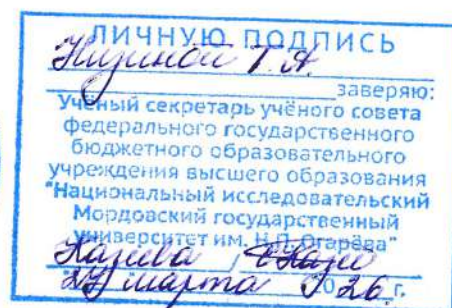 ЛИЧНУЮ ПОДПИСЬ
Низиной Т.А.
заверяю:
Учёный секретарь учёного совета
федерального государственного
бюджетного образовательного
учреждения высшего образования
"Национальный исследовательский
Мордовский государственный
университет им. Н.П. Огарёва"
/
"27" марта 2026 г.